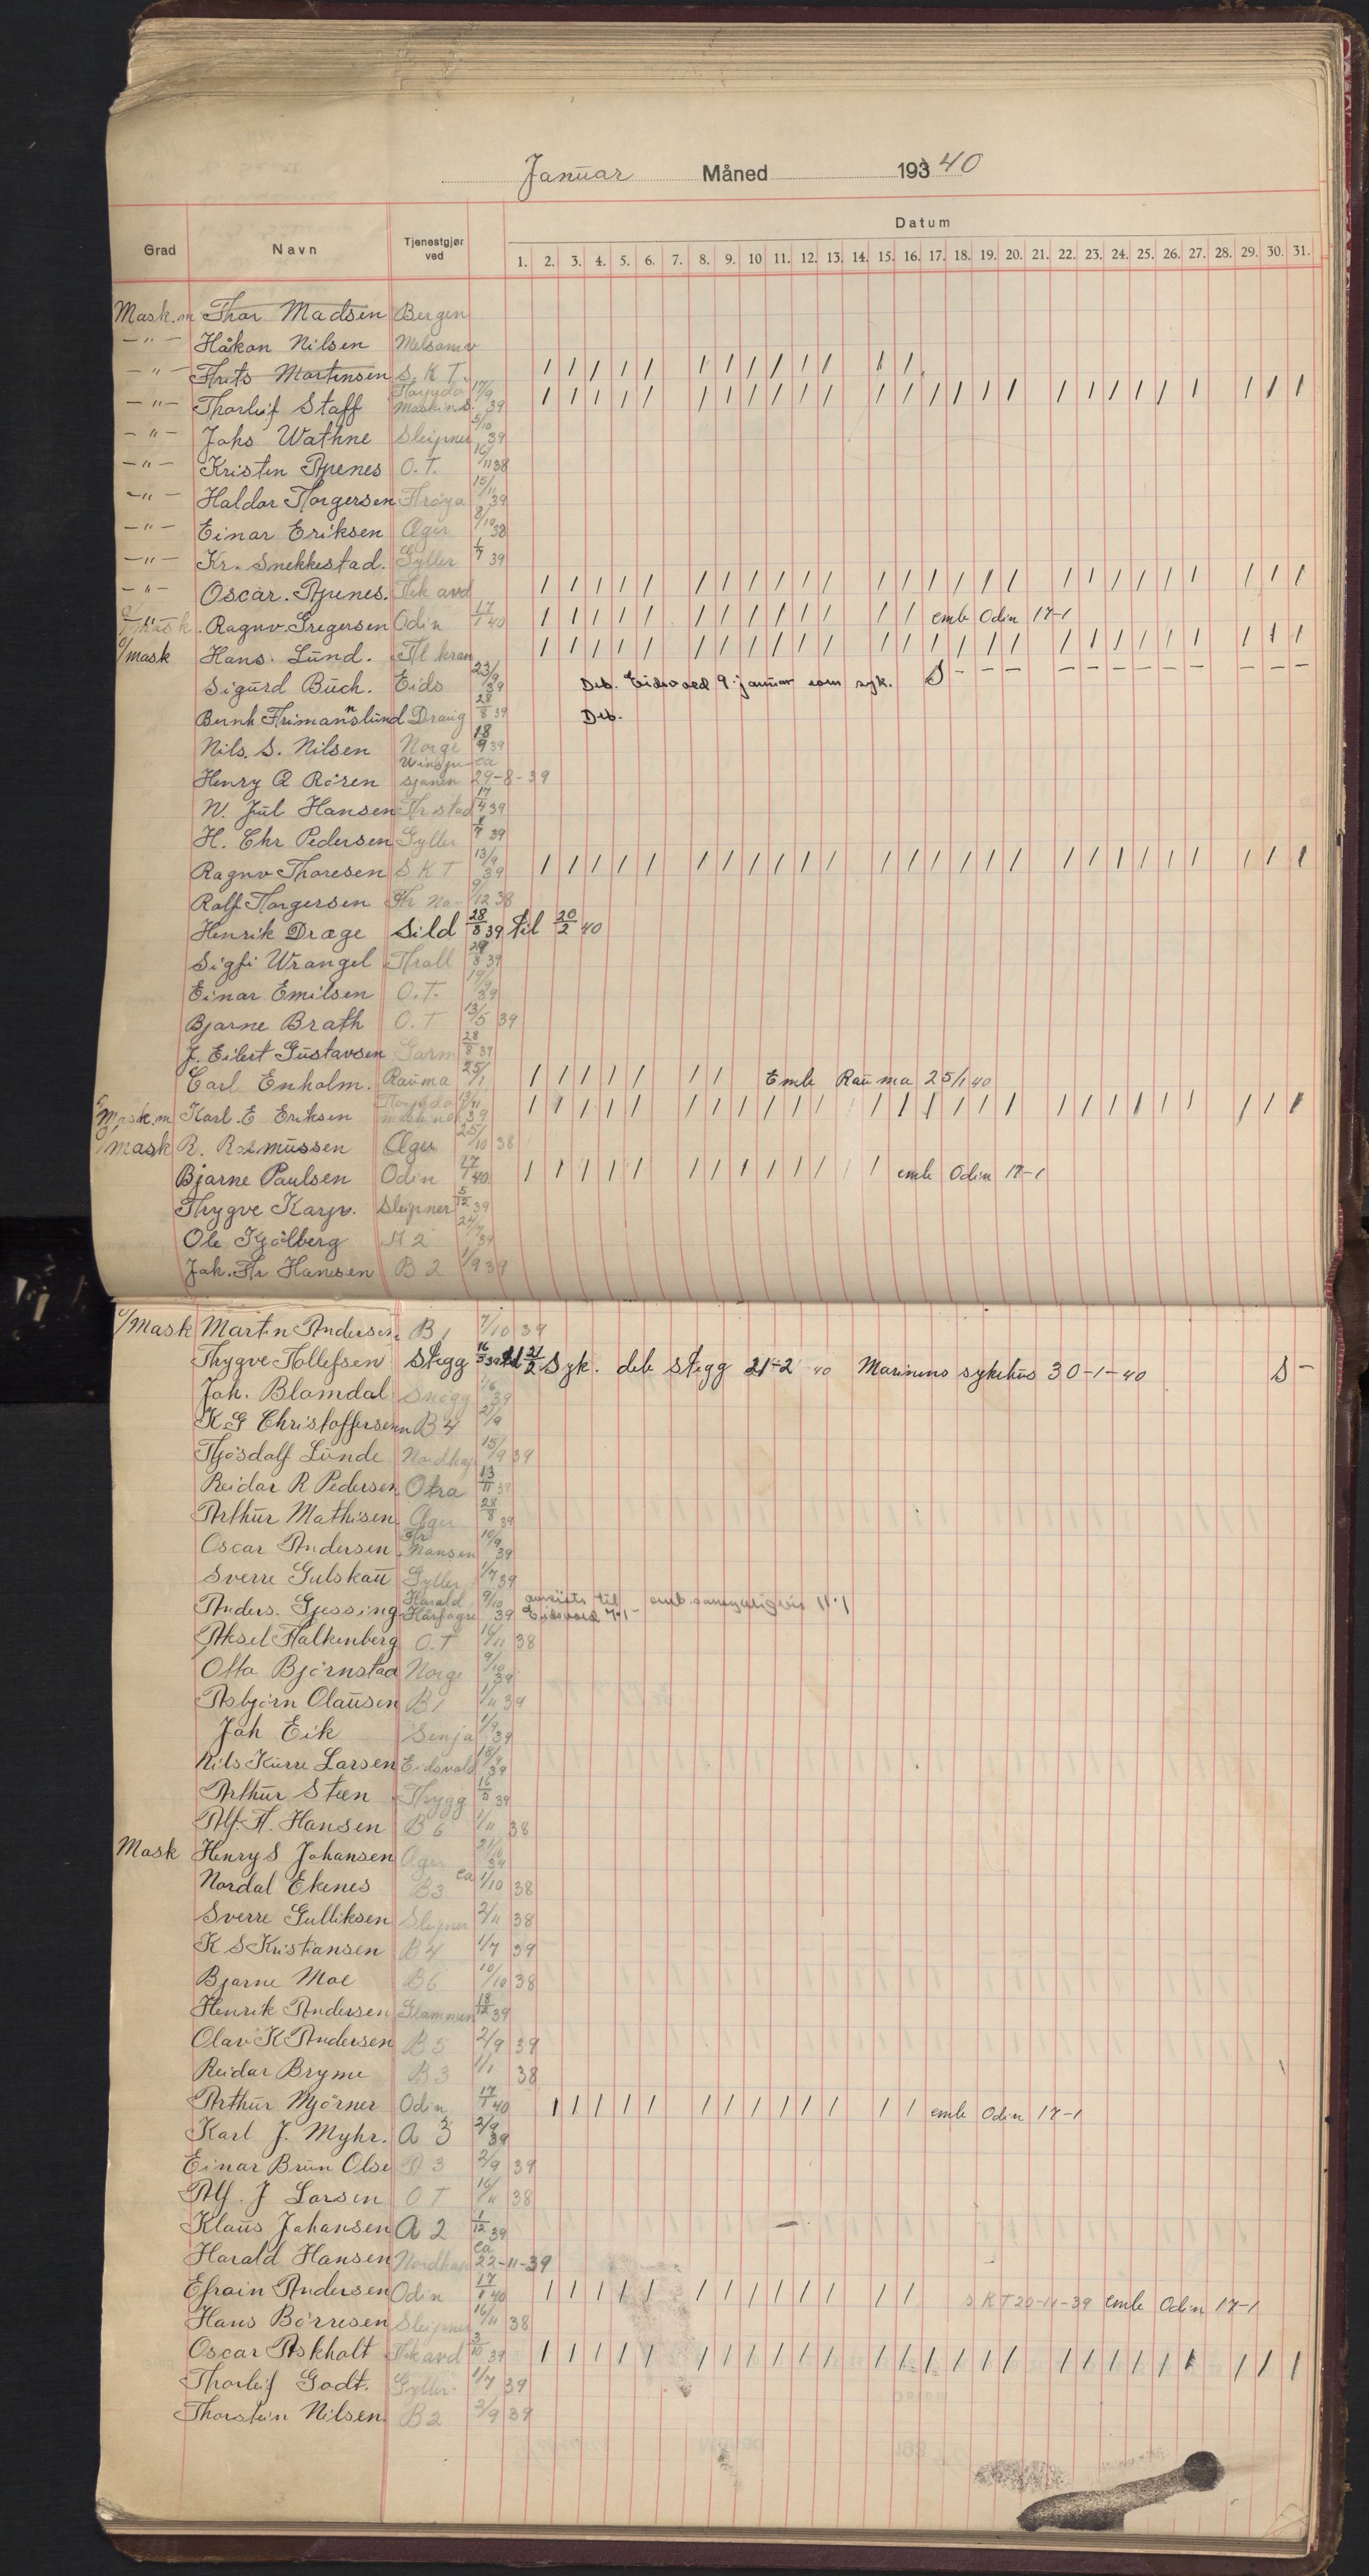 Januar Måned 1934 40
Grad Navn Tjenestgjør ved Datum
1. 2. 3. 4. 5. 6. 7. 8. 9. 10 11. 12. 13. 14. 15. 16. 17. 18. 19. 20. 21. 22. 23. 24. 25. 26. 27. 28. 29. 30. 31.
Mask.m Thor Madsen Bergen
—"— Håkon Nilsen Melsomv
—"— Frits Martinsen S. K. T. / / / / / / / / / / / / /
—"— Thorleif Staff Torpedo Maskins. 17/9 39 / / / / / / / / / / / / / / / / / / / / / / / / / /
—"— Johs Wathne Sleipner 5/10 39
—"— Kristen Apenes O. T. 16/11 38
—"— Haldor Torgersen Frøya 15/11 39
—"— Einar Eriksen Æger 8/10 38
—"— Kr. Snekkestad. Gyller 1/7 39
—"— Oscar. Apenes. Tek avd / / / / / / / / / / / / / / / / / / / / / / / / / /
Ragnv. Gregersen Odin 17/1 40 / / / / / / / / / / / / / emb Odin 17-1
u/mask Hans. Lund. Fl kran / / / / / / / / / / / / / / / / / / / / / / / / / /
Sigurd Buch. Eids 23/9 39 Deb. Eidsvold 9. januar som syk. S - - - - - - - - - - - -
Bernh Frimannslund Draug 28/8 39 Deb.
Nils. S. Nilsen Norge 18/9 39
Henry A Røren sjanen ca 29-8-39
N. Jul Hansen Fr stad 17/4 39
H. Chr Pedersen Gyller 1/7 39
Ragnv Thoresen S K T 13/9 39 / / / / / / / / / / / / / / / / / / / / / / / / / /
Rolf Torgersen Fr. Na 9/12 38
Henrik Dræge Sild 28/8 39 til 20/2 40
Sigfr Wrangel Trall 29/8 39
Einar Emilsen O. T. 19/9 39
Bjarne Brath O. T 13/5 39
J. Eilert Gustavsen Garm 28/8 39
Carl Enholm. Rauma 25/1 / / / / / / / Emb Rauma 25/1 40
Mask.m Karl. E Eriksen Torpedo maskinsk 13/11 39 / / / / / / / / / / / / / / / / / / / / / / / / / /
u/mask R. Rasmussen Æger 25/10 38
Bjarne Paulsen Odin 17/1 40 / / / / / / / / / / / / / emb Odin 17-1
Trygve Karp. Sleipner 5/12 39
Ole Kjølberg M 2 24/7 39
Joh. Fr Hansen B 2 1/9 39
u/mask Martin Andersen B 1 7/10 39
Trygve Tollefsen Stegg 16/5 39 til 21/2 Syk. deb Stegg 21-2 40 Marinens sykehus 30-1-40 S -
Joh. Blomdal Snøgg 1/6 39
K. G Christoffersen B 4 27/9
Tjøsdolf Lunde Nordkap 15/9 39
Reidar R Pedersen Otra 13/11 39
Arthur Mathisen Æger 28/8 39
Oscar Andersen Fr Nansen 10/9 39
Sverre Gulskau Gyller 1/7 39
Anders. Gjessing Harald Hårfagre 9/10 39 avreiste til Eidsvold 7-1 - emb sannsynligvis 11-1
Aksel Falkenberg O. T 16/11 38
Otto Bjørnstad Norge 9/10 39
Asbjørn Olausen B 1 1/11 39
Joh Eik Senja 1/9 39
Nils Kurre Larsen Eidsvold 18/9 39
Arthur Steen Trygg 16/5 39
Alf. F. Hansen B 6 1/11 38
Mask Henry S Johansen Æger 21/10 39
Nordal Ekenes B 3 ca 1/10 38
Sverre Gulliksen Sleipner 2/11 38
K S Kristiansen B 4 1/7 39
Bjarne Moe B 6 10/10 38
Henrik Andersen Glommen 18/12 39
Olav K Andersen B 5 2/9 39
Reidar Bryme B 3 1/1 38
Arthur Mjörner Odin 17/1 40 / / / / / / / / / / / / / emb Odin 17-1
Karl J. Myhr. A 3 2/9 39
Einar Brun Olse B 3 2/9 39
Alf. J Larsen O T 16/11 38
Klaus Johansen A 2 1/12 39
Harald Hansen Nordkap ca 22-11-39
Efrain Andersen Odin 17/1 40 / / / / / / / / / / / / / S K T 20-11-39 emb Odin 17-1
Hans Børresen Sleipner 16/11 38
Oscar Askholt Tek avd 3/10 39 / / / / / / / / / / / / / / / / / / / / / / / / / /
Thorleif Godt. Gyller 1/7 39
Thorstein Nilsen. B 2 2/9 39